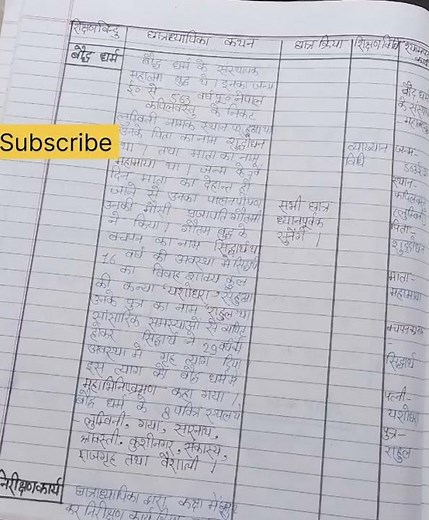 शिक्षणबिन्दु
छात्राध्यापिका कथन
छात्र क्रिया
शिक्षण विधि
श्यामपट्ट कार्य
बौद्ध धर्म
बौद्ध धर्म के संस्थापक
महात्मा बुद्ध थे। इनका जन्म
ई० से 563 वर्ष पू० नेपाल
कपिलवस्तु के निकट
लुम्बिनी नामक स्थान पर हुआ था
उनके पिता का नाम शुद्धोधन
था। तथा माता का नाम
महामाया था। जन्म के 7वे
दिन माता का देहान्त हो
जाने से उनका पालनपोषण
उनकी मौसी प्रजापति गौतमी
ने किया। गौतम बुद्ध के
बचपन का नाम सिद्धार्थ था
16 वर्ष की अवस्था में सिद्धार्थ
का विवाह शाक्य कुल
की कन्या यशोधरा से हुआ
उनके पुत्र का नाम राहुल था
सांसारिक समस्याओं से व्यथित
होकर सिद्धार्थ ने 29 वर्ष की
अवस्था में गृह त्याग दिया
इस त्याग को बौद्ध धर्म में
महाभिनिष्क्रमण कहा गया।
बौद्ध धर्म के 8 पवित्र स्थल थे
- लुम्बिनी, गया, सारनाथ,
श्रावस्ती, कुशीनगर, संकास्य,
राजगृह तथा वैशाली।
सभी छात्र
ध्यानपूर्वक
सुनेंगे।
व्याख्यान
विधि
बौद्ध धर्म
के संस्था
महात्मा
जन्म-
563
स्थान-
कपिलवस्
(लुम्बिनी
पिता-
शुद्धोधन
माता-
महामाया
बचपन का
सिद्धार्थ
पत्नी-
यशोधरा
पुत्र-
राहुल
निरीक्षण कार्य
छात्राध्यापिका द्वारा कक्षा में घूम
कर निरीक्षण कार्य किया
Subscribe